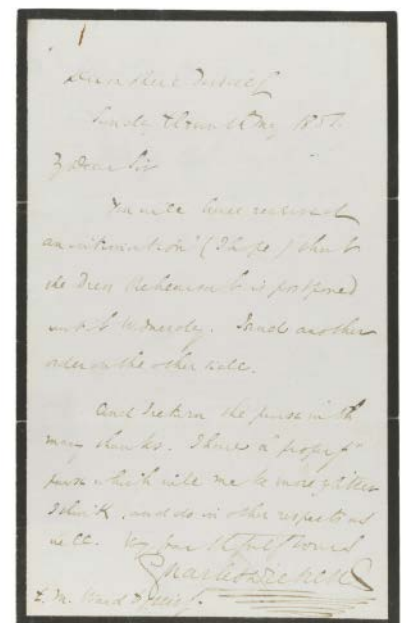 Devonshire House
Sunday Eleventh May 1851.
My Dear Sir
You will have received
an intimation (I hope) that
the Dress Rehearsal is postponed
until Wednesday. I send another
order on the other side.
And I return the purse with
many thanks. I have a "property"
purse which will me be more glitter
I think, and do in other respects as
well. Very faithfully Yours
Charles Dickens
E. M. Ward Esquire.